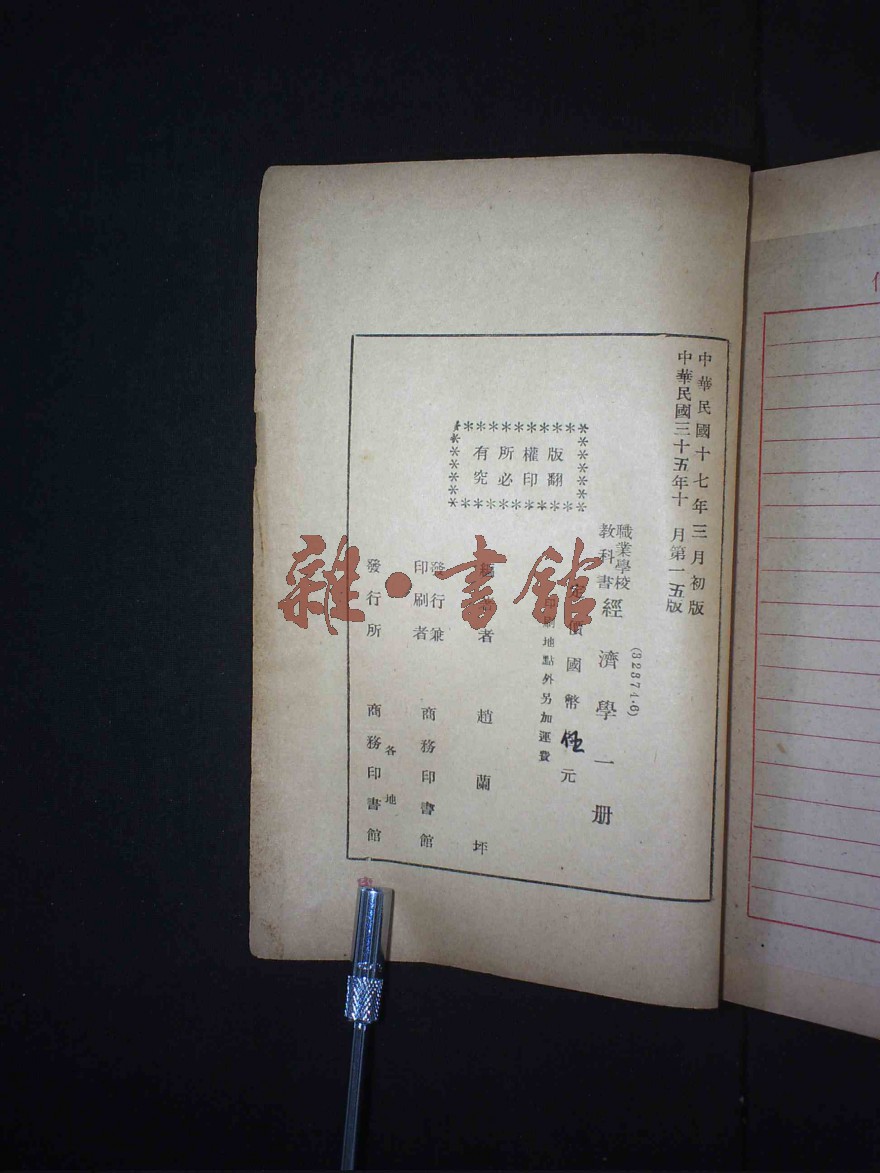 中華民國十七年三月初版
中華民國三十五年十月第一五版
(82374·6)
職業學校
教科書
經濟學一册
定價國幣伍元
印刷地點外另加運費
版權所有
翻印必究
著者 趙蘭坪
發行兼
印刷者 商務印書館
各地
發行所 商務印書館
雜·書館